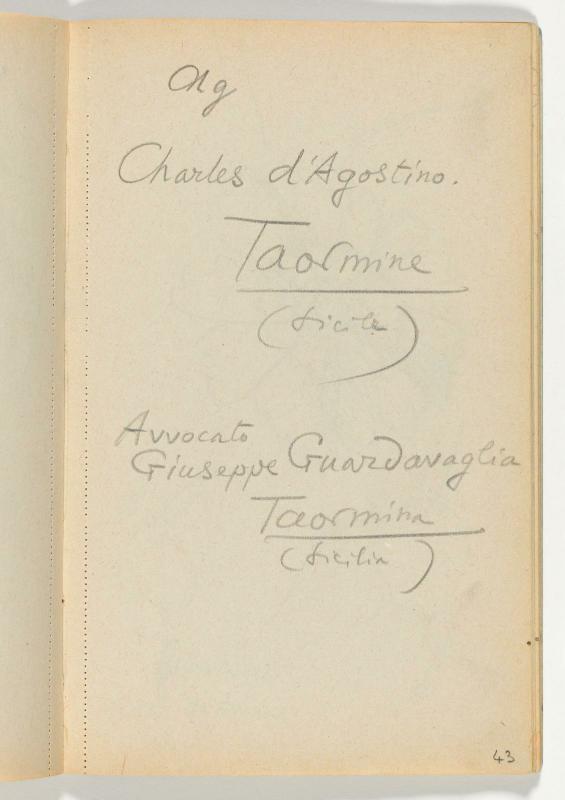 Charles d'Agostino.
Taormine
(Sicile)
Avvocato
Giuseppe Guardavaglia
Taormina
(Sicilia)
43